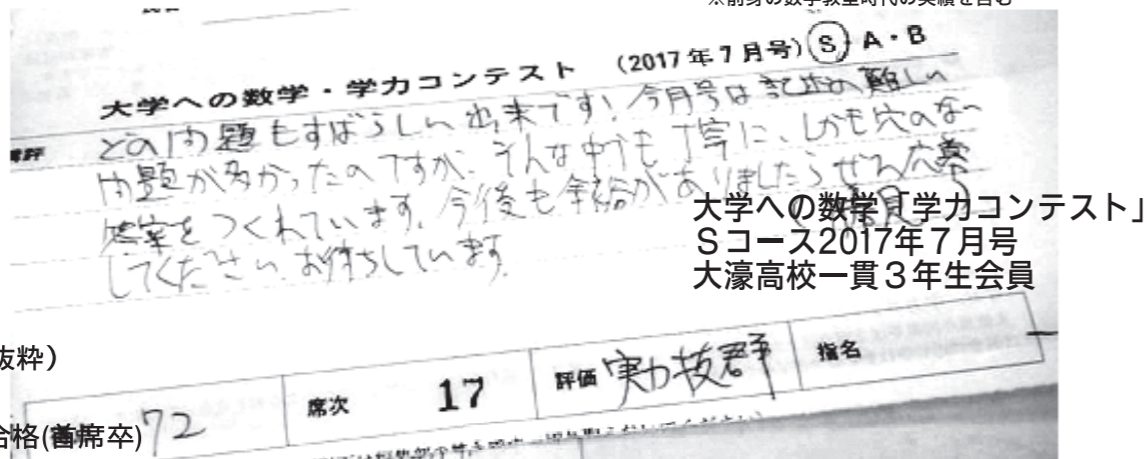 ※前身の数学教室時代の実績を含む
大学への数学・学力コンテスト (2017年7月号) S・A・B
どの問題もすばらしい出来です! 今月号は記述の難しい
問題が多かったのですが、そんな中でも丁寧に、しかも穴のない
答案をつくれています。今後も余裕がありましたらぜひ応募
してください。お待ちしています。
大学への数学「学力コンテスト」
Sコース2017年7月号
大濠高校一貫3年生会員
抜粋)
72 席次 17 評価 実力抜群 指名
合格(首席卒)